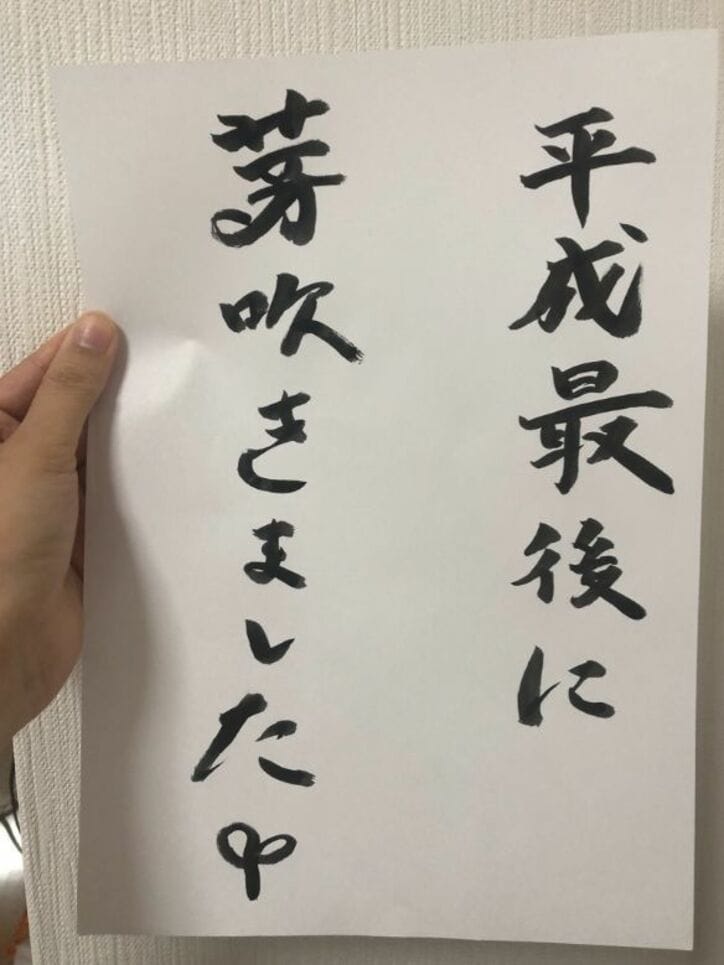 平成最後に
芽吹きました